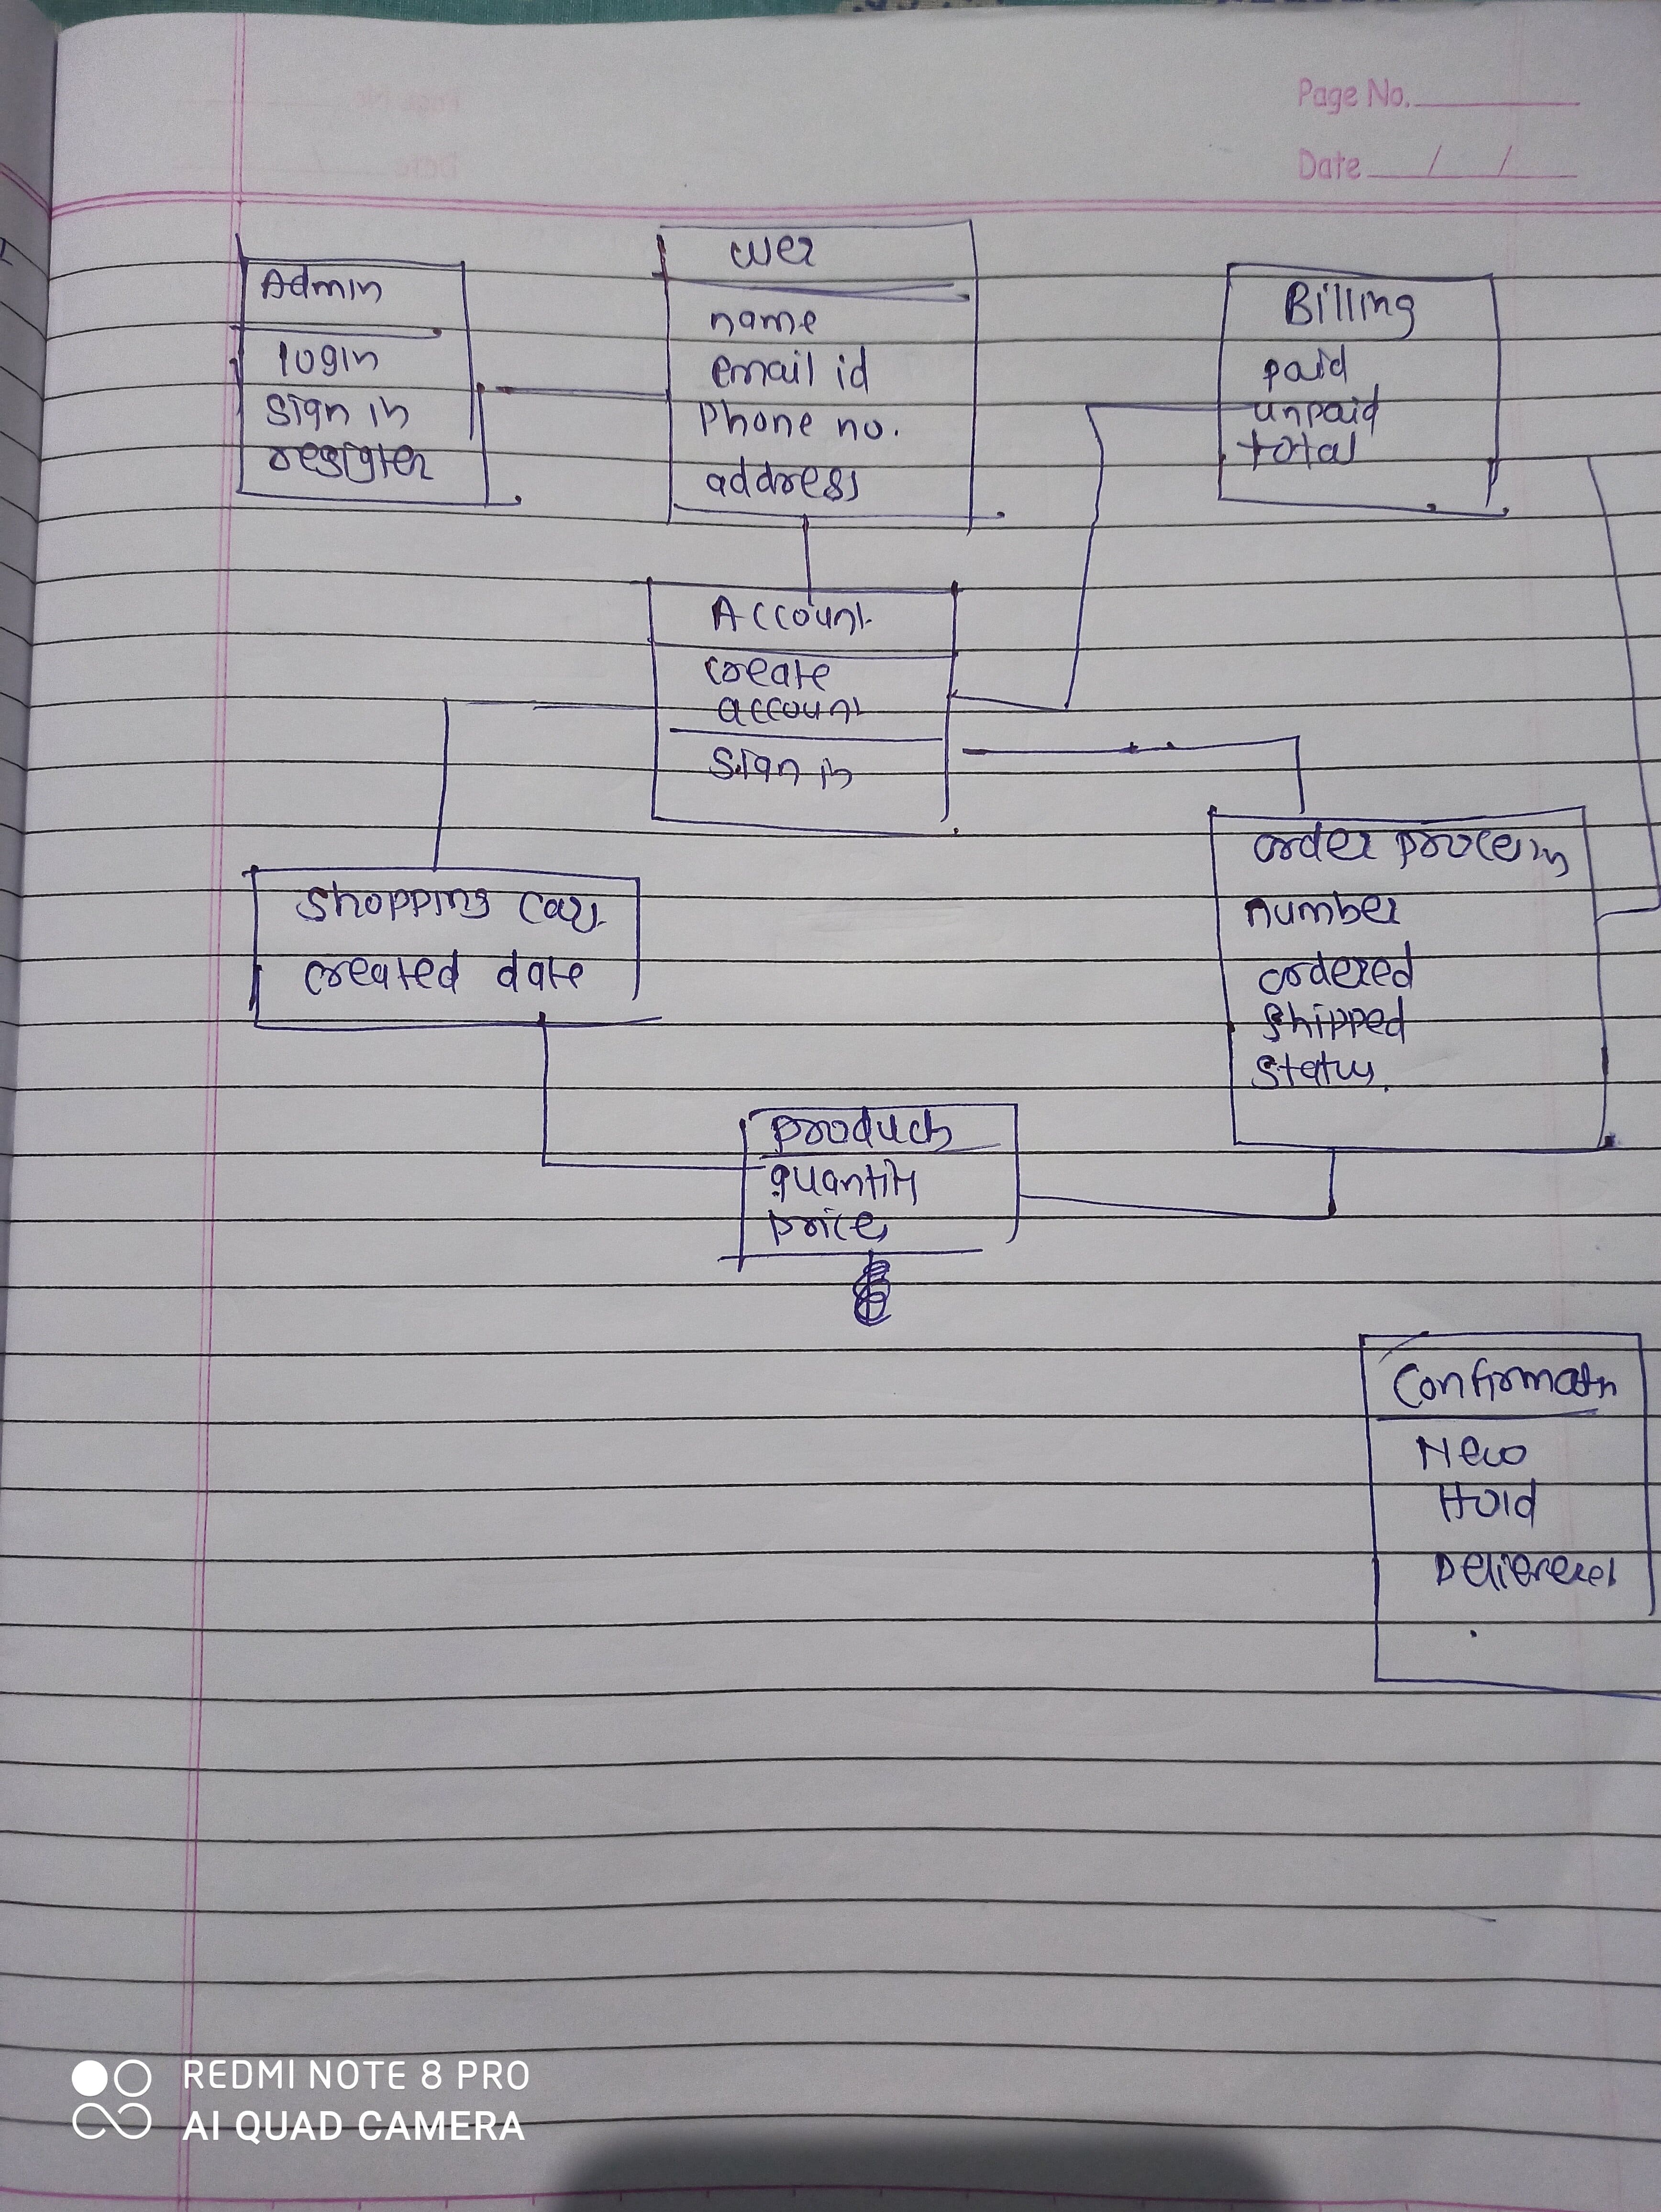 Page No.
Date / /
Admin
login
sign in
resigter
user
name
email id
Phone no.
address
Billing
paid
unpaid
total
Account
create
account
Sign in
shopping cart
created date
order process
number
ordered
shipped
status.
products
quantity
price
Confirmatn
New
Hold
REDMI NOTE 8 PRO
AI QUAD CAMERA